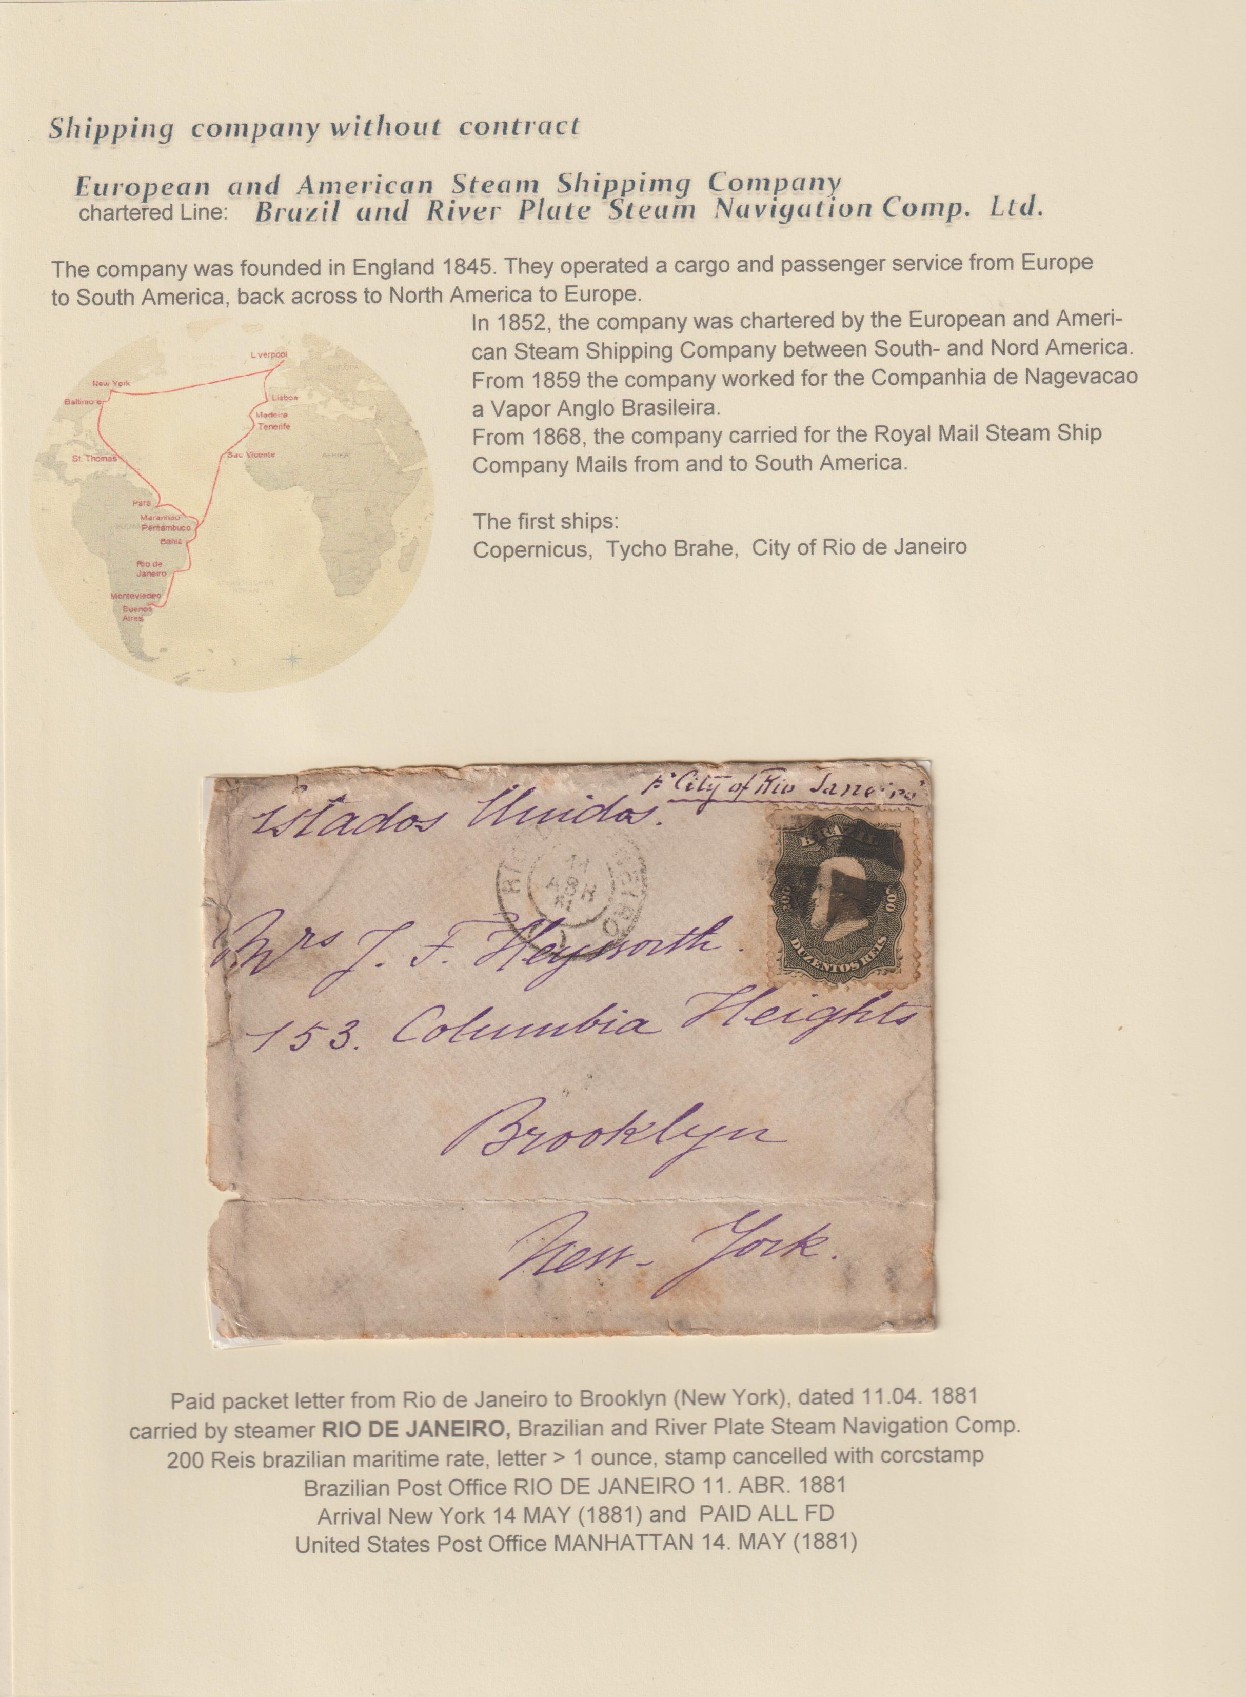 Shipping company without contract
European and American Steam Shippimg Company
chartered Line: Brazil and River Plate Steam Navigation Comp. Ltd.
The company was founded in England 1845. They operated a cargo and passenger service from Europe
to South America, back across to North America to Europe.
In 1852, the company was chartered by the European and Ameri-
can Steam Shipping Company between South- and Nord America.
From 1859 the company worked for the Companhia de Nagevacao
a Vapor Anglo Brasileira.
From 1868, the company carried for the Royal Mail Steam Ship
Company Mails from and to South America.
The first ships:
Copernicus, Tycho Brahe, City of Rio de Janeiro
Liverpool
New York
Baltimore
Lisboa
Madeira
Tenerife
St. Thomas
Sao Vicente
AFRIKA
Para
Maranhao
Pernambuco
Bahia
Rio de
Janeiro
Montevideo
Buenos
Aires
pr City of Rio Janeiro
Estados Unidos.
11
ABR
81
BRAZIL
200
200
DUZENTOS REIS
Mrs J. F. Heyworth.
153. Columbia Heights
Brooklyn
New-York.
Paid packet letter from Rio de Janeiro to Brooklyn (New York), dated 11.04. 1881
carried by steamer RIO DE JANEIRO, Brazilian and River Plate Steam Navigation Comp.
200 Reis brazilian maritime rate, letter > 1 ounce, stamp cancelled with corcstamp
Brazilian Post Office RIO DE JANEIRO 11. ABR. 1881
Arrival New York 14 MAY (1881) and PAID ALL FD
United States Post Office MANHATTAN 14. MAY (1881)